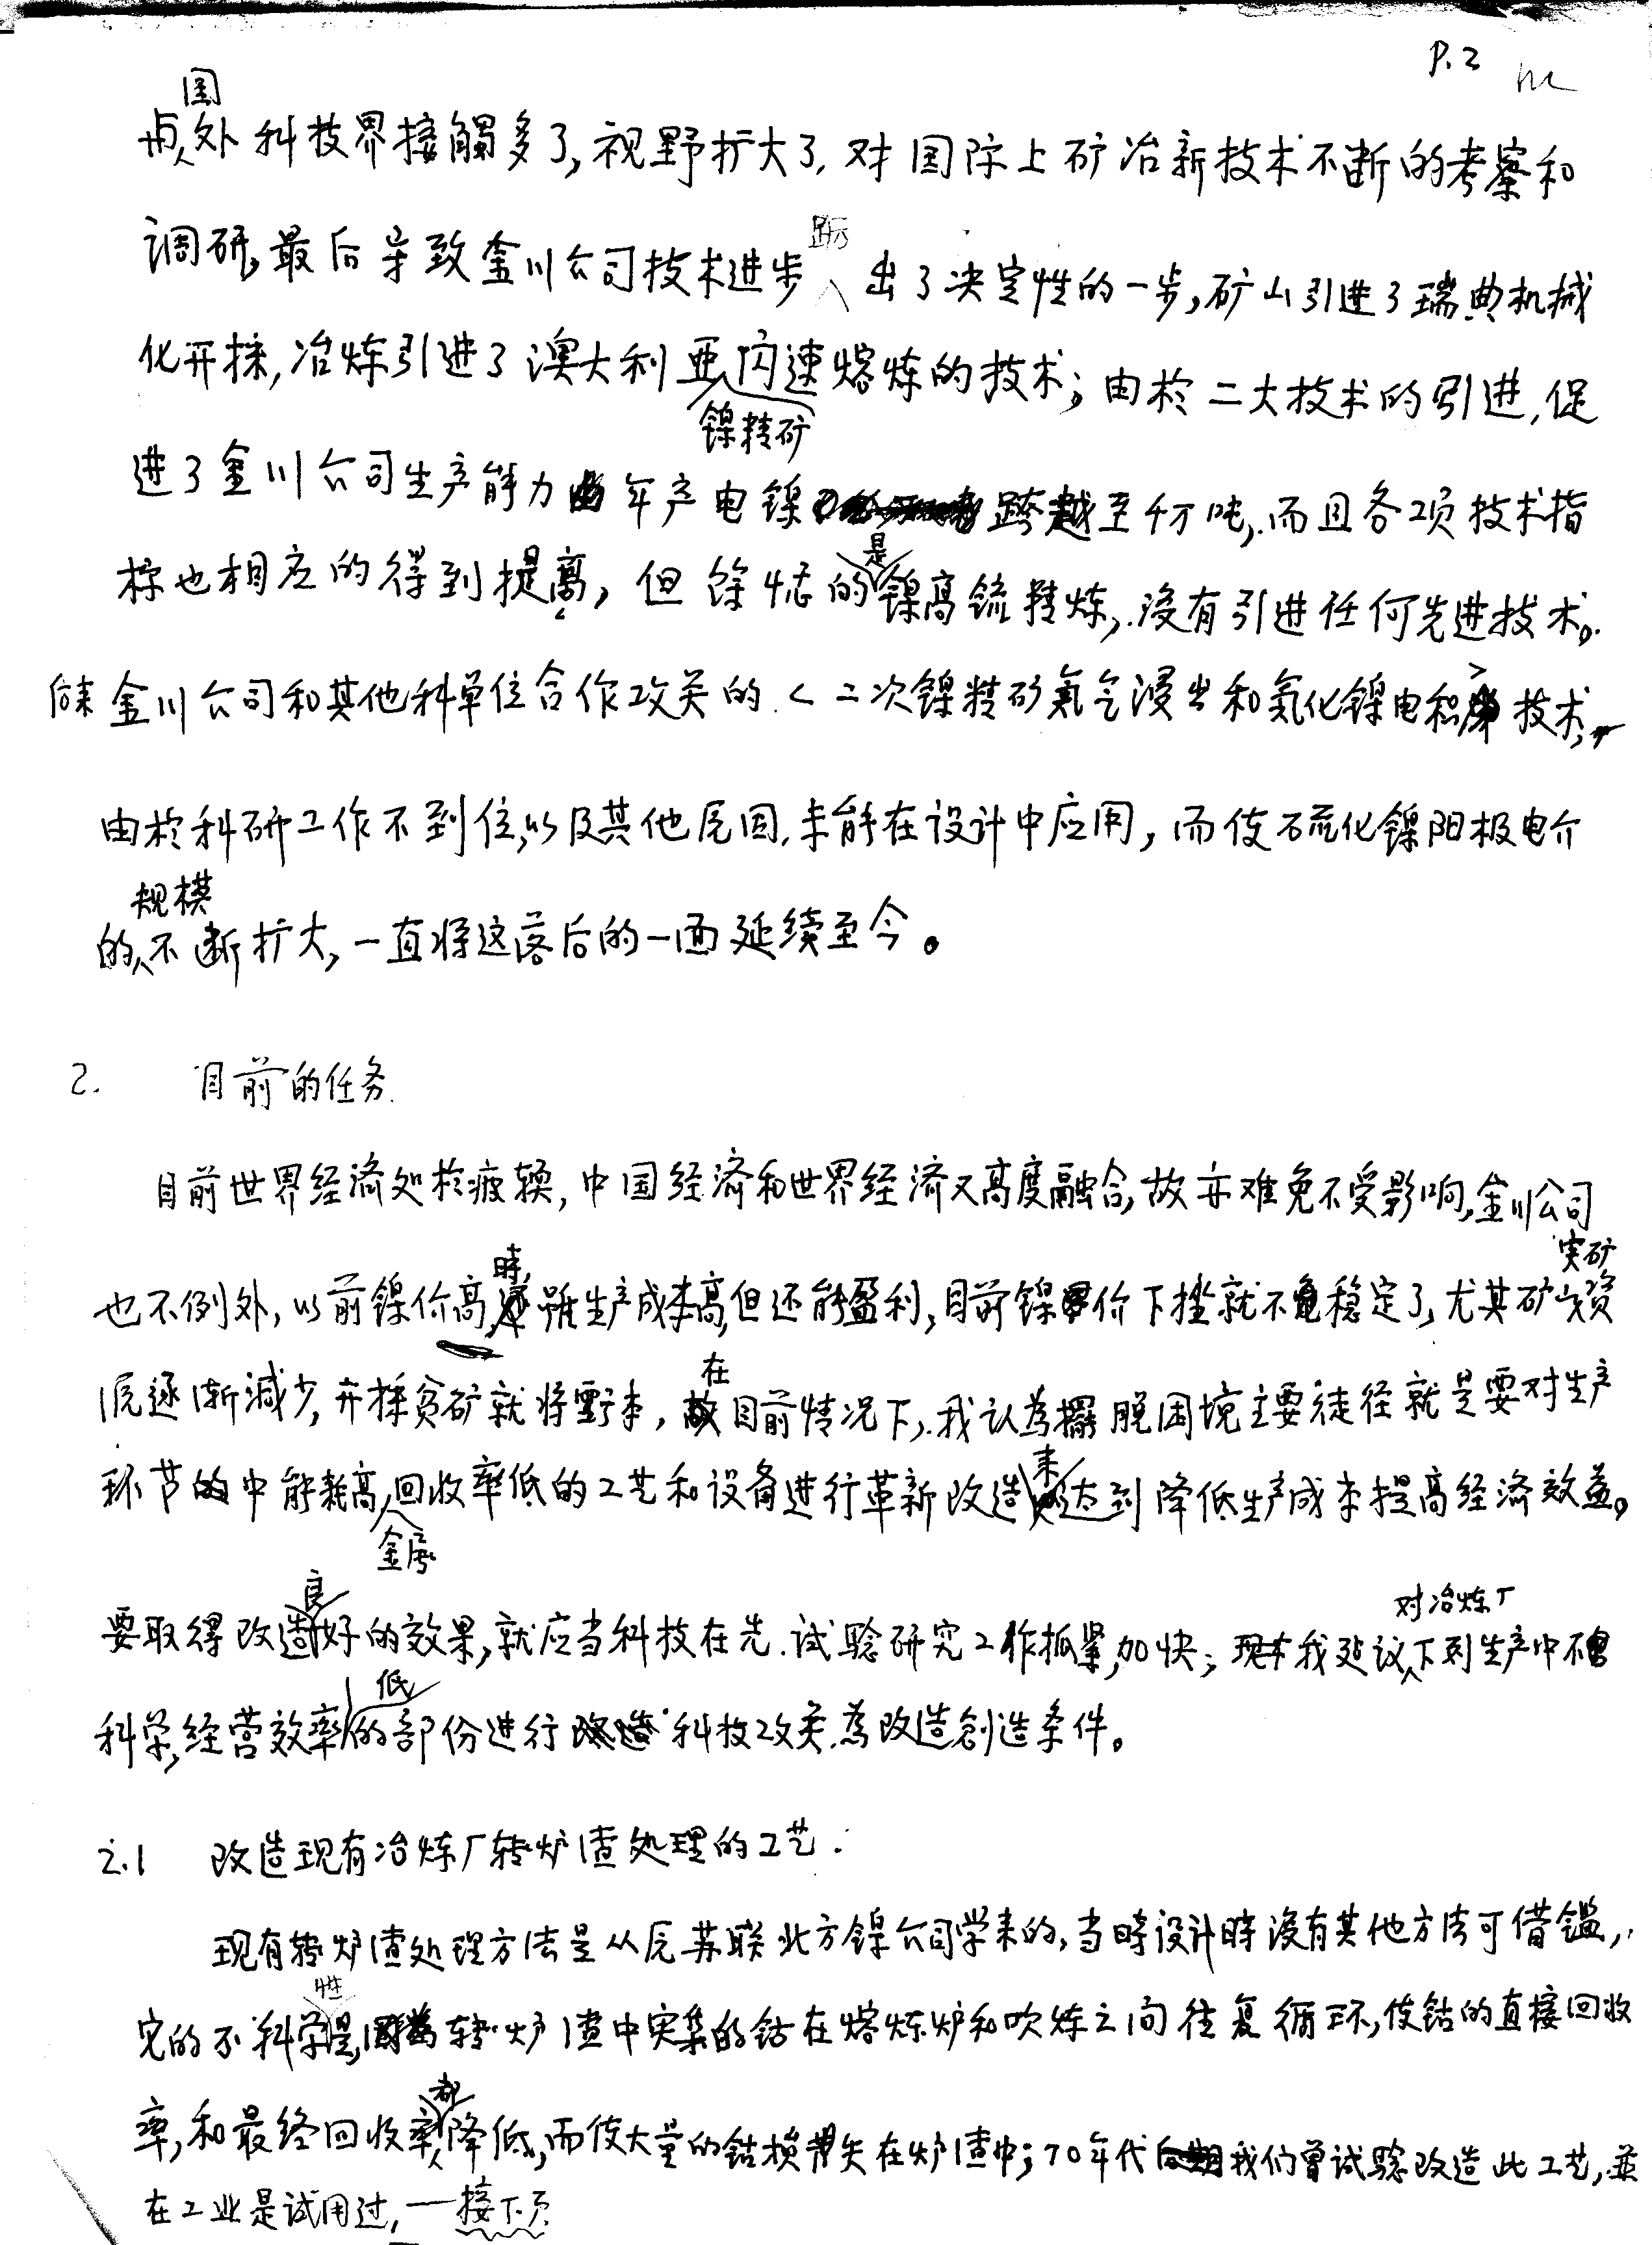 P.2
与国外科技界接触多了,视野扩大了,对国际上矿冶新技术不断的考察和
调研,最后导致金川公司技术进步跃出了决定性的一步,矿山引进了瑞典机械
化开採,冶炼引进了澳大利亚镍精矿闪速熔炼的技术;由於二大技术的引进,促
进了金川公司生产能力由年产电镍跨越至十万吨,而且各项技术指
标也相应的得到提高,但馀憾的是镍高锍精炼,没有引进任何先进技术。
后来金川公司和其他科单位合作攻关的<二次镍精矿氯气浸出和氯化镍电积>技术,
由於科研工作不到位,以及其他原因,未能在设计中应用,而使硫化镍阳极电介
的规模不断扩大,一直将这落后的一面延续至今。
2. 目前的任务.
目前世界经济处於疲软,中国经济和世界经济又高度融合,故亦难免不受影响,金川公司
也不例外,以前镍价高時,虽生产成本高,但还能盈利,目前镍价下挫就不稳定了,尤其矿山资
源逐渐减少,开採贫矿就将亏本,在目前情况下,我认為摆脱困境主要徒径就是要对生产
环节中能耗高,金属回收率低的工艺和设备进行革新改造来达到降低生产成本提高经济效益。
要取得改造良好的效果,就应当科技在先.试验研究工作抓紧,加快;我建议对冶炼厂下列生产中不
科学,经营效率低的部份进行科技攻关.為改造創造条件。
2.1 改造现有冶炼厂转炉渣处理的工艺.
现有转炉渣处理方法是从原苏联北方镍公司学来的,当時设计時没有其他方法可借鑑,
它的不科学性是,转炉渣中富集的钴在熔炼炉和吹炼之间往复循环,使钴的直接回收
率,和最终回收率都降低,而使大量的钴损失在炉渣中;70年代我们曾试验改造此工艺,并
在工业是试用过,一接下页